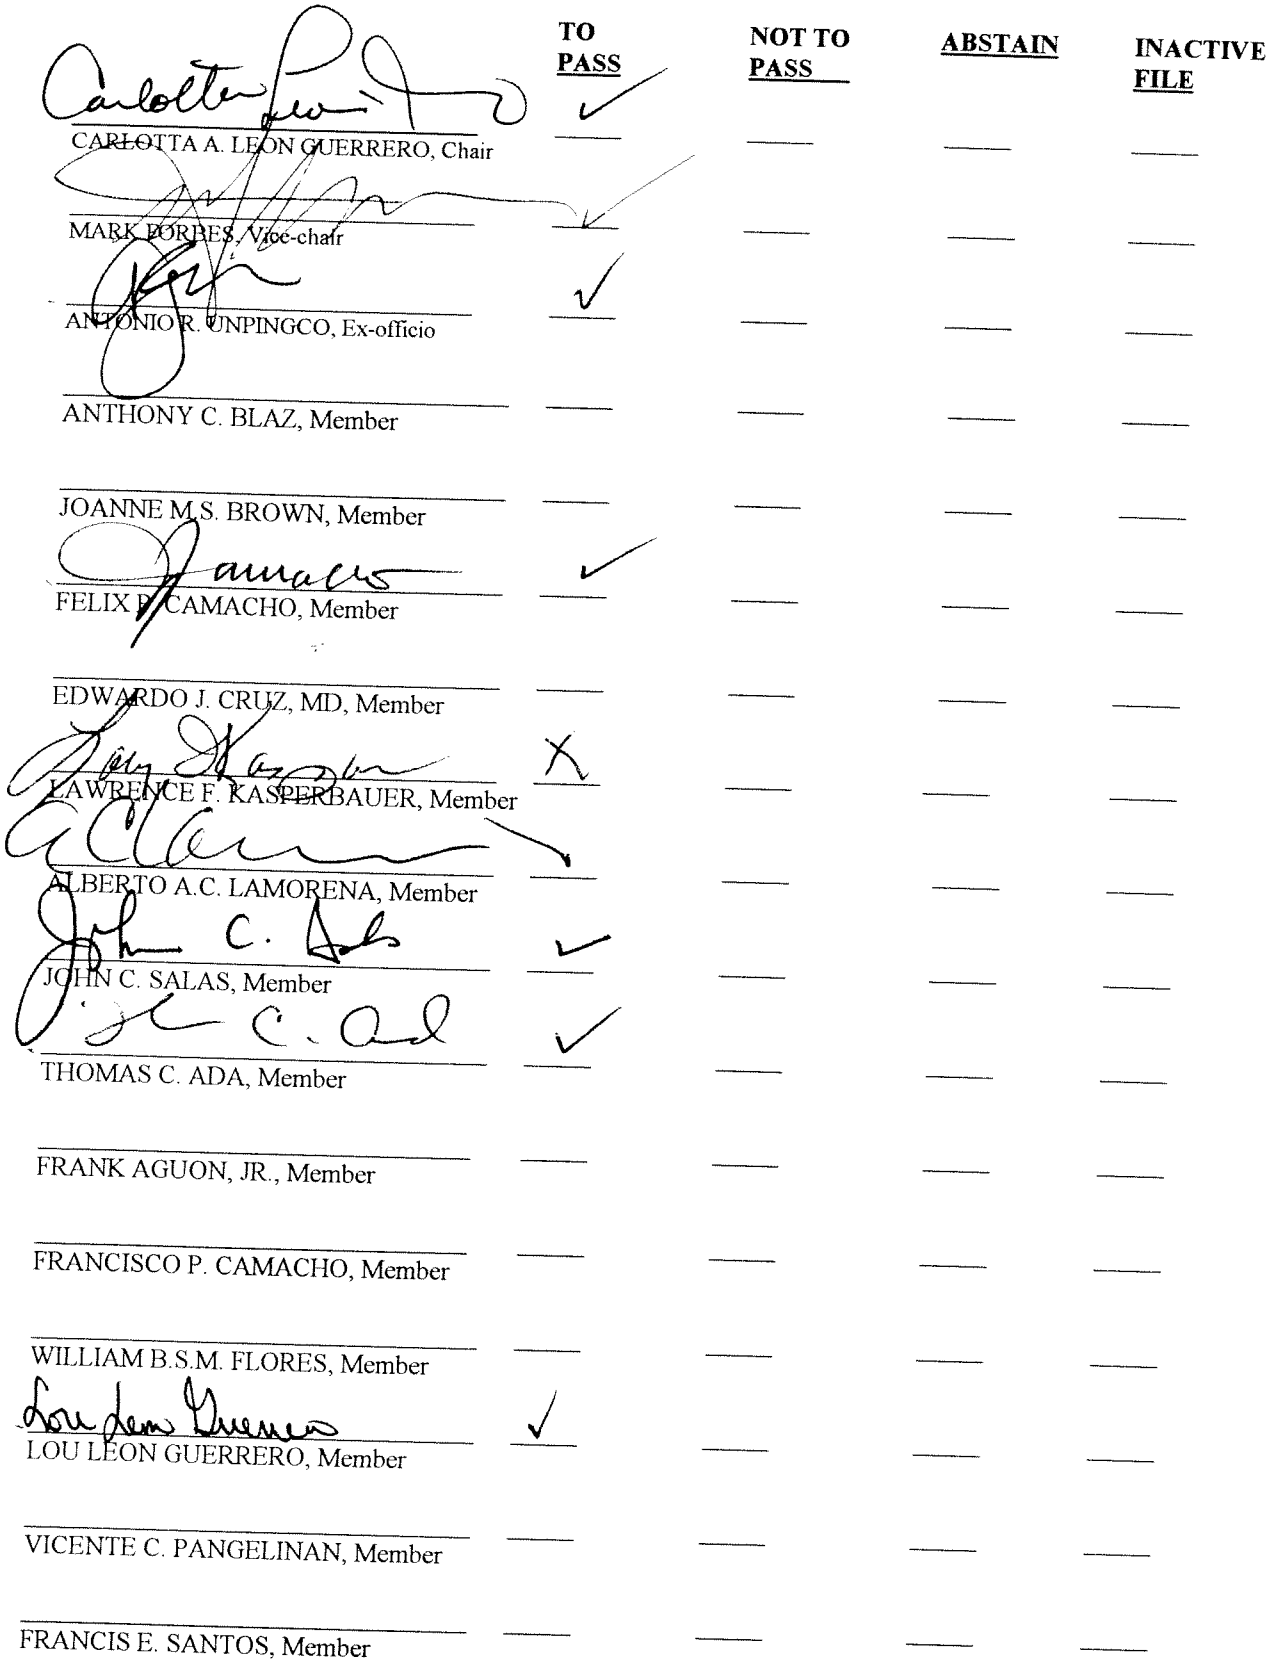 TO PASS NOT TO PASS ABSTAIN INACTIVE FILE
Carlotta Leon ✓
CARLOTTA A. LEON GUERRERO, Chair
✓
MARK FORBES, Vice-chair
✓
ANTONIO R. UNPINGCO, Ex-officio
ANTHONY C. BLAZ, Member
JOANNE M.S. BROWN, Member
Camacho ✓
FELIX P. CAMACHO, Member
EDWARDO J. CRUZ, MD, Member
X
LAWRENCE F. KASPERBAUER, Member
ALBERTO A.C. LAMORENA, Member
John C. Salas ✓
JOHN C. SALAS, Member
C. Ada ✓
THOMAS C. ADA, Member
FRANK AGUON, JR., Member
FRANCISCO P. CAMACHO, Member
WILLIAM B.S.M. FLORES, Member
Lou Leon Guerrero ✓
LOU LEON GUERRERO, Member
VICENTE C. PANGELINAN, Member
FRANCIS E. SANTOS, Member